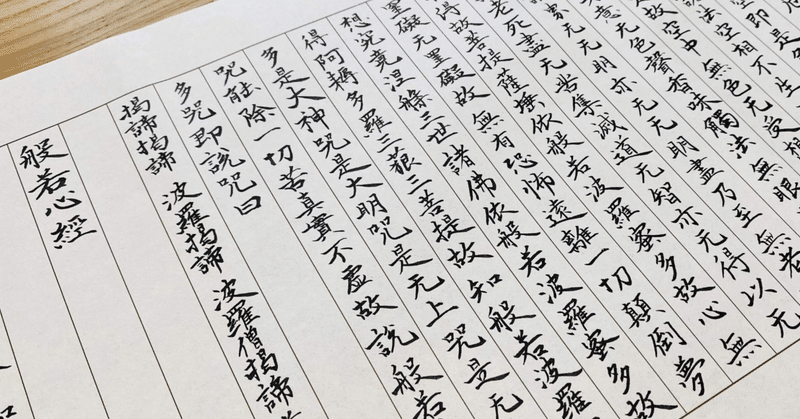 即是
法空相不生
故空中無色无受想
意无色聲香味觸法無眼
无无明亦无无明盡乃至無老
老死盡无苦集滅道无智亦无得以无
得故菩提薩埵依般若波羅蜜多故心無
罣礙无罣礙故無有恐怖遠離一切顛倒夢
想究竟涅槃三世諸佛依般若波羅蜜多故
得阿耨多羅三藐三菩提故知般若波羅
多是大神咒是大明咒是无上咒是无
咒能除一切苦真實不虛故說般若
多咒即說咒曰
揭諦揭諦 波羅揭諦 波羅僧揭諦
般若心經